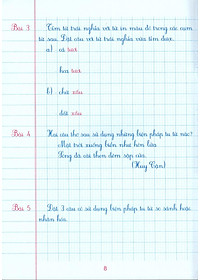 Bài 3 Tìm từ trái nghĩa với từ in màu đỏ trong các cụm
từ sau. Đặt câu với từ trái nghĩa vừa tìm được.
a) cá tươi
hoa tươi
b) chữ xấu
đất xấu
Bài 4 Hai câu thơ sau sử dụng những biện pháp tu từ nào?
Mặt trời xuống biển như hòn lửa
Sóng đã cài then đêm sập cửa.
(Huy Cận)
Bài 5 Đặt 3 câu có sử dụng biện pháp tu từ so sánh hoặc
nhân hóa.
8